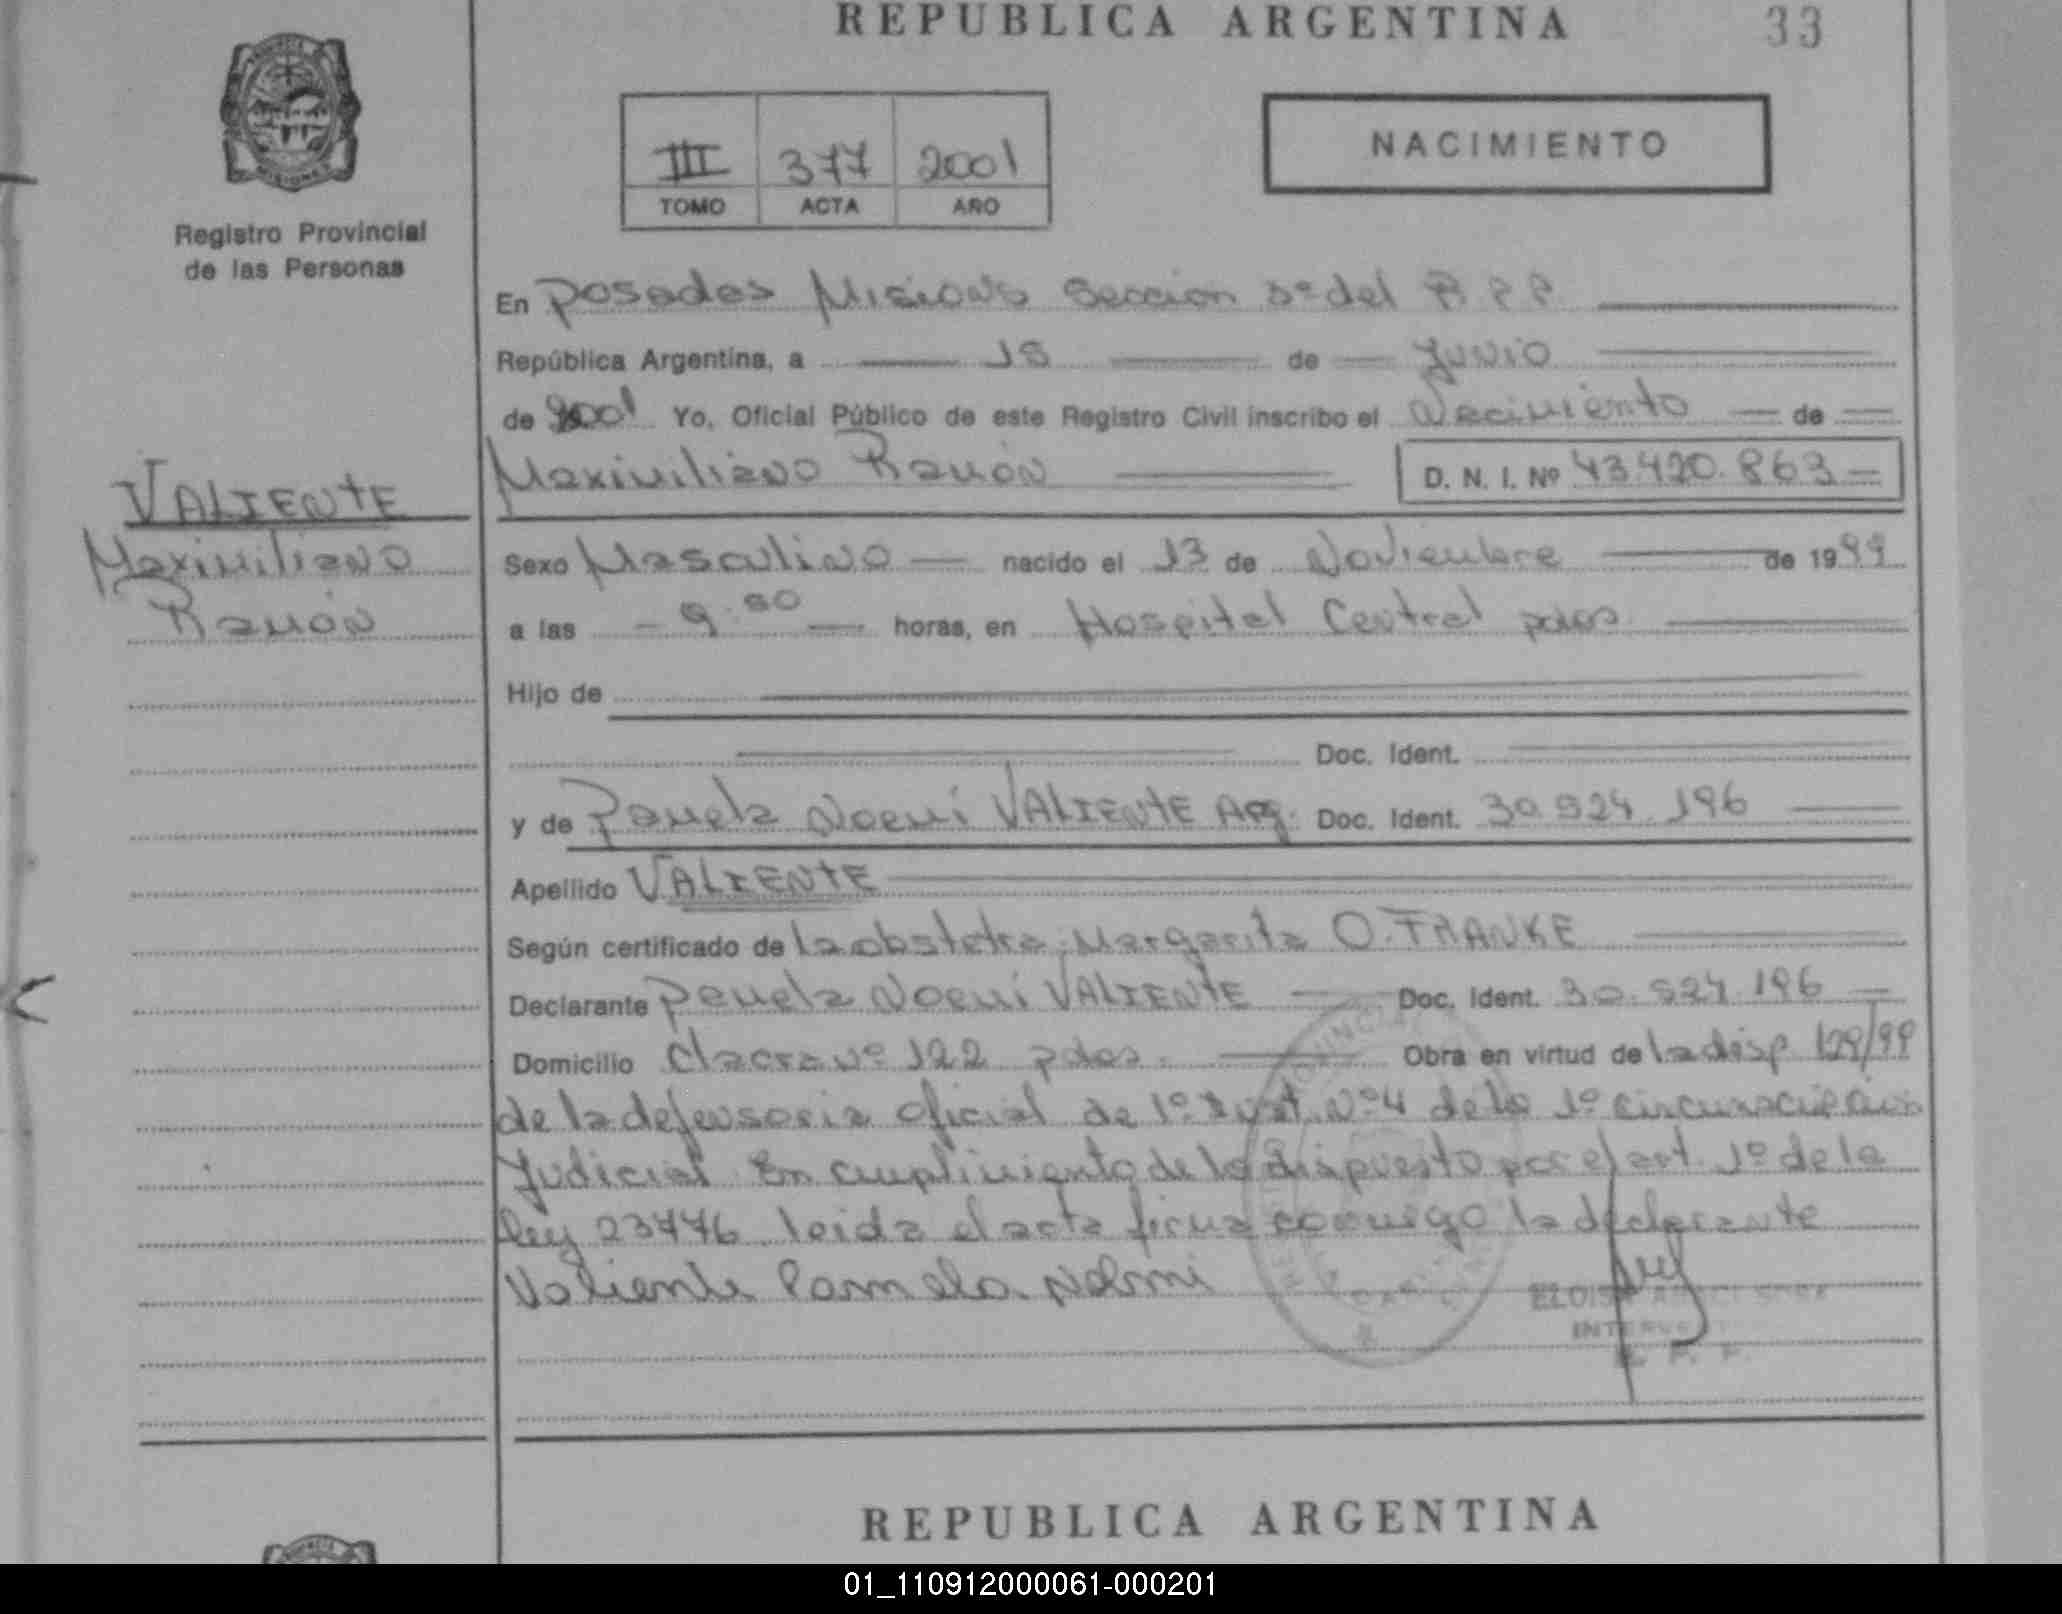 REPUBLICA ARGENTINA
33
PROVINCIA
MISIONES
Registro Provincial
de las Personas
III 377 2001
TOMO ACTA AÑO
NACIMIENTO
En Posadas Misiones Sección 3º del R P P
República Argentina, a 18 de Junio
de 2001 Yo, Oficial Público de este Registro Civil inscribo el Nacimiento de
Maximiliano Ramón D. N. I. Nº 43.420.863
VALIENTE
Maximiliano
Ramón
Sexo Masculino nacido el 13 de Noviembre de 1999
a las 9 horas, en Hospital Central pdas
Hijo de
Doc. Ident.
y de Pamela Noemí VALIENTE Arg. Doc. Ident. 30.924.196
Apellido VALIENTE
Según certificado de la obstetra Margarita O. FRANKE
Declarante Pamela Noemí VALIENTE Doc. Ident. 30.924.196
Domicilio Chacra nº 122 pdas. Obra en virtud de la disp 129/99
de la defensoria oficial de 1º Inst. Nº4 de la 1º circunscripción
Judicial En cumplimiento de lo dispuesto por el art. 1º de la
ley 23776 leida el acta firma conmigo la declarante
Valiente Pamela Noemi
ELOISA
R. P. P.
REPUBLICA ARGENTINA
01_110912000061-000201